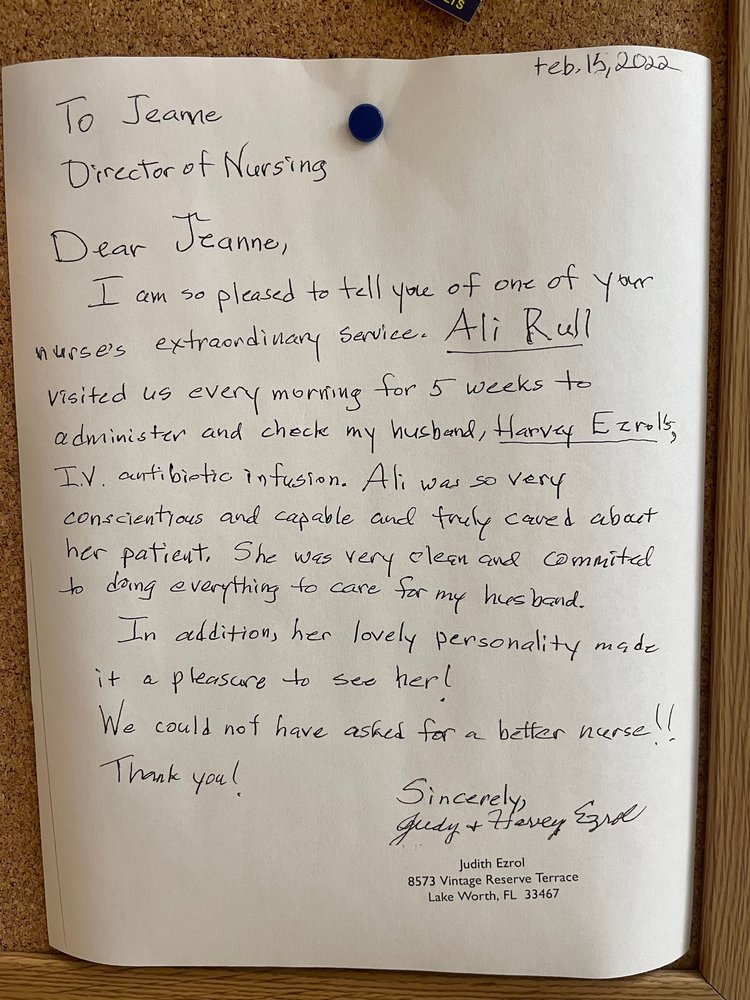 Feb. 15, 2022
To Jeanne
Director of Nursing
Dear Jeanne,
I am so pleased to tell you of one of your
nurse's extraordinary service. Ali Rull
visited us every morning for 5 weeks to
administer and check my husband, Harvey Ezrol's,
I.V. antibiotic infusion. Ali was so very
conscientious and capable and truly cared about
her patient. She was very clean and commited
to doing everything to care for my husband.
In addition, her lovely personality made
it a pleasure to see her!
We could not have asked for a better nurse!!
Thank you!
Sincerely,
Judy + Harvey Ezrol
Judith Ezrol
8573 Vintage Reserve Terrace
Lake Worth, FL 33467